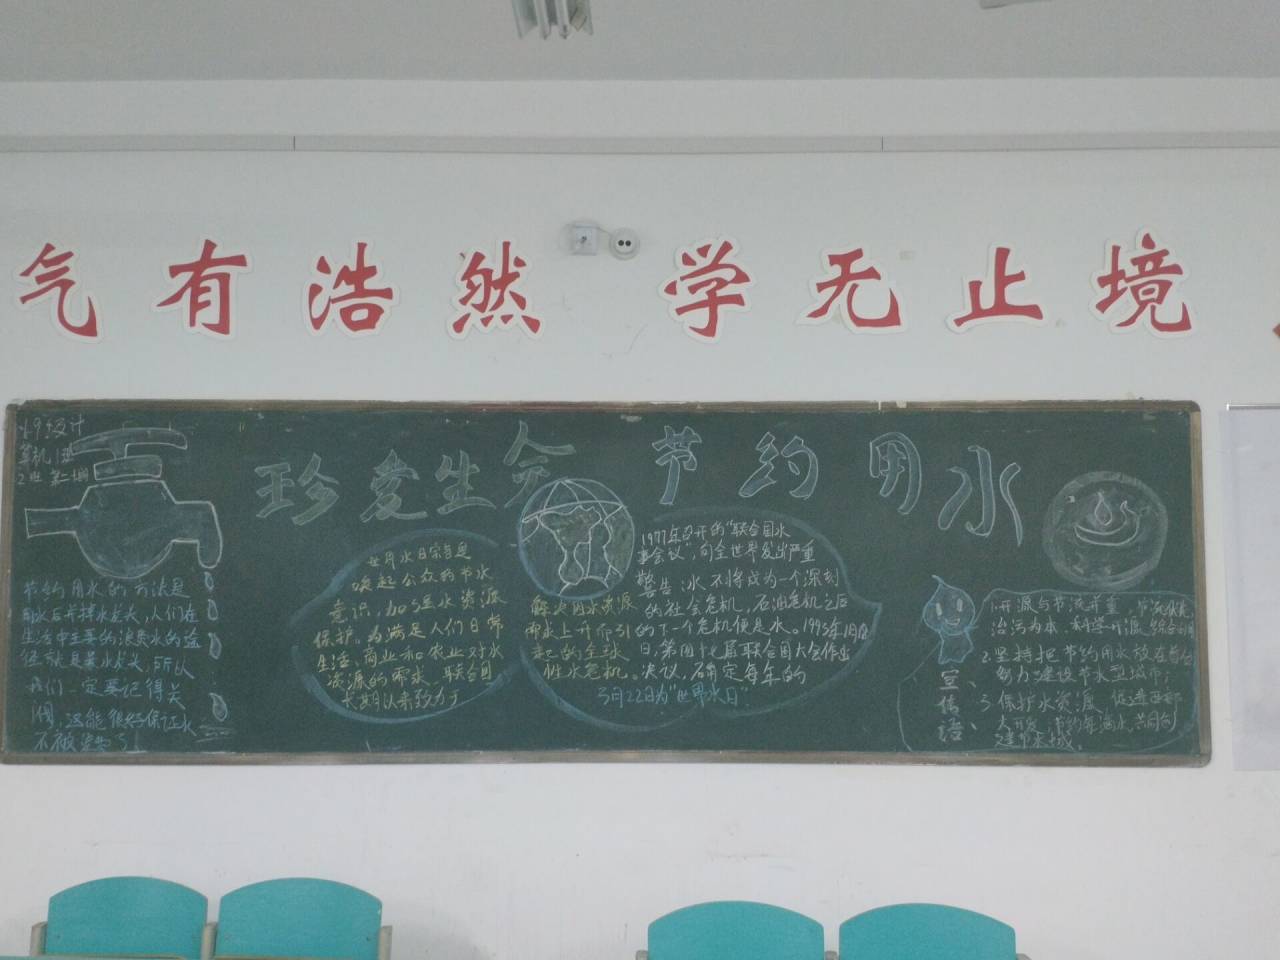 气有浩然 学无止境
珍爱生命 节约用水
节约用水的方法是
用水后关掉水龙头,人们在
生活中主要的浪费水的途
径就是
我们一定要记得关
世界水日宗旨是
唤起公众的节水
意识,加强水资源
保护。为满足人们日常
生活、商业和农业对水
资源的需求,联合国
长期以来致力于
解决因水资源
需求上升而引
起的全球
性水危机。
1977年召开的“联合国水
事会议”,向全世界发出严重
警告:水不将成为一个深刻
的社会危机,石油危机之后
的下一个危机便是水。1993年1月
日,第四十七届联合国大会作出
决议,确定每年的
3月22日为“世界水日”
宣传语:
1.开源与节流并重,节流优先
治污为本,科学开源,综合利用
2.坚持把节约用水放在首位
努力建设节水型城市;
3.保护水资源,促进西部
大开发,节约每滴水,共同